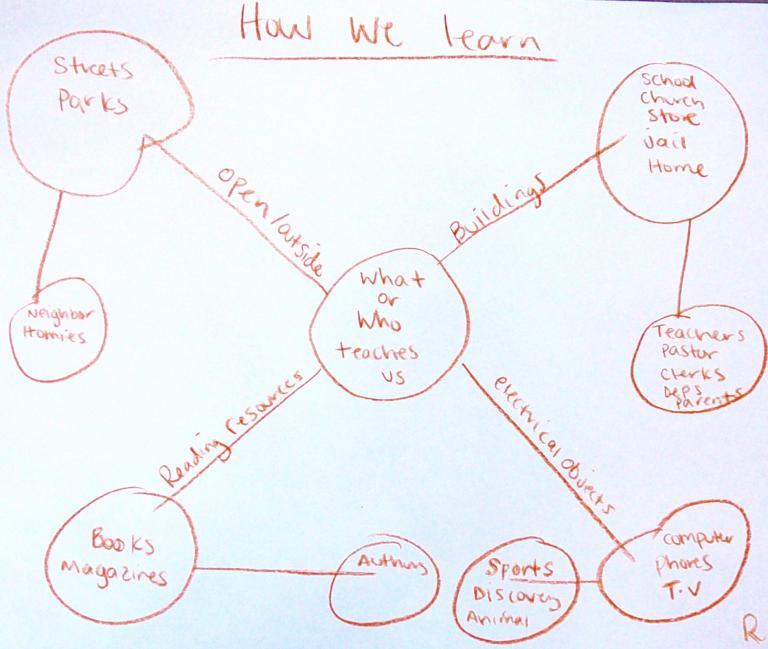 How We learn
Streets
Parks
open/outside
Neighbor
Homies
School
Church
Store
Jail
Home
Buildings
Teachers
Pastor
Clerks
Deps
Parents
What
or
Who
teaches
us
Reading resources
Books
Magazines
Authors
electrical objects
Computer
phones
T.V
Sports
Discovery
Animal
R